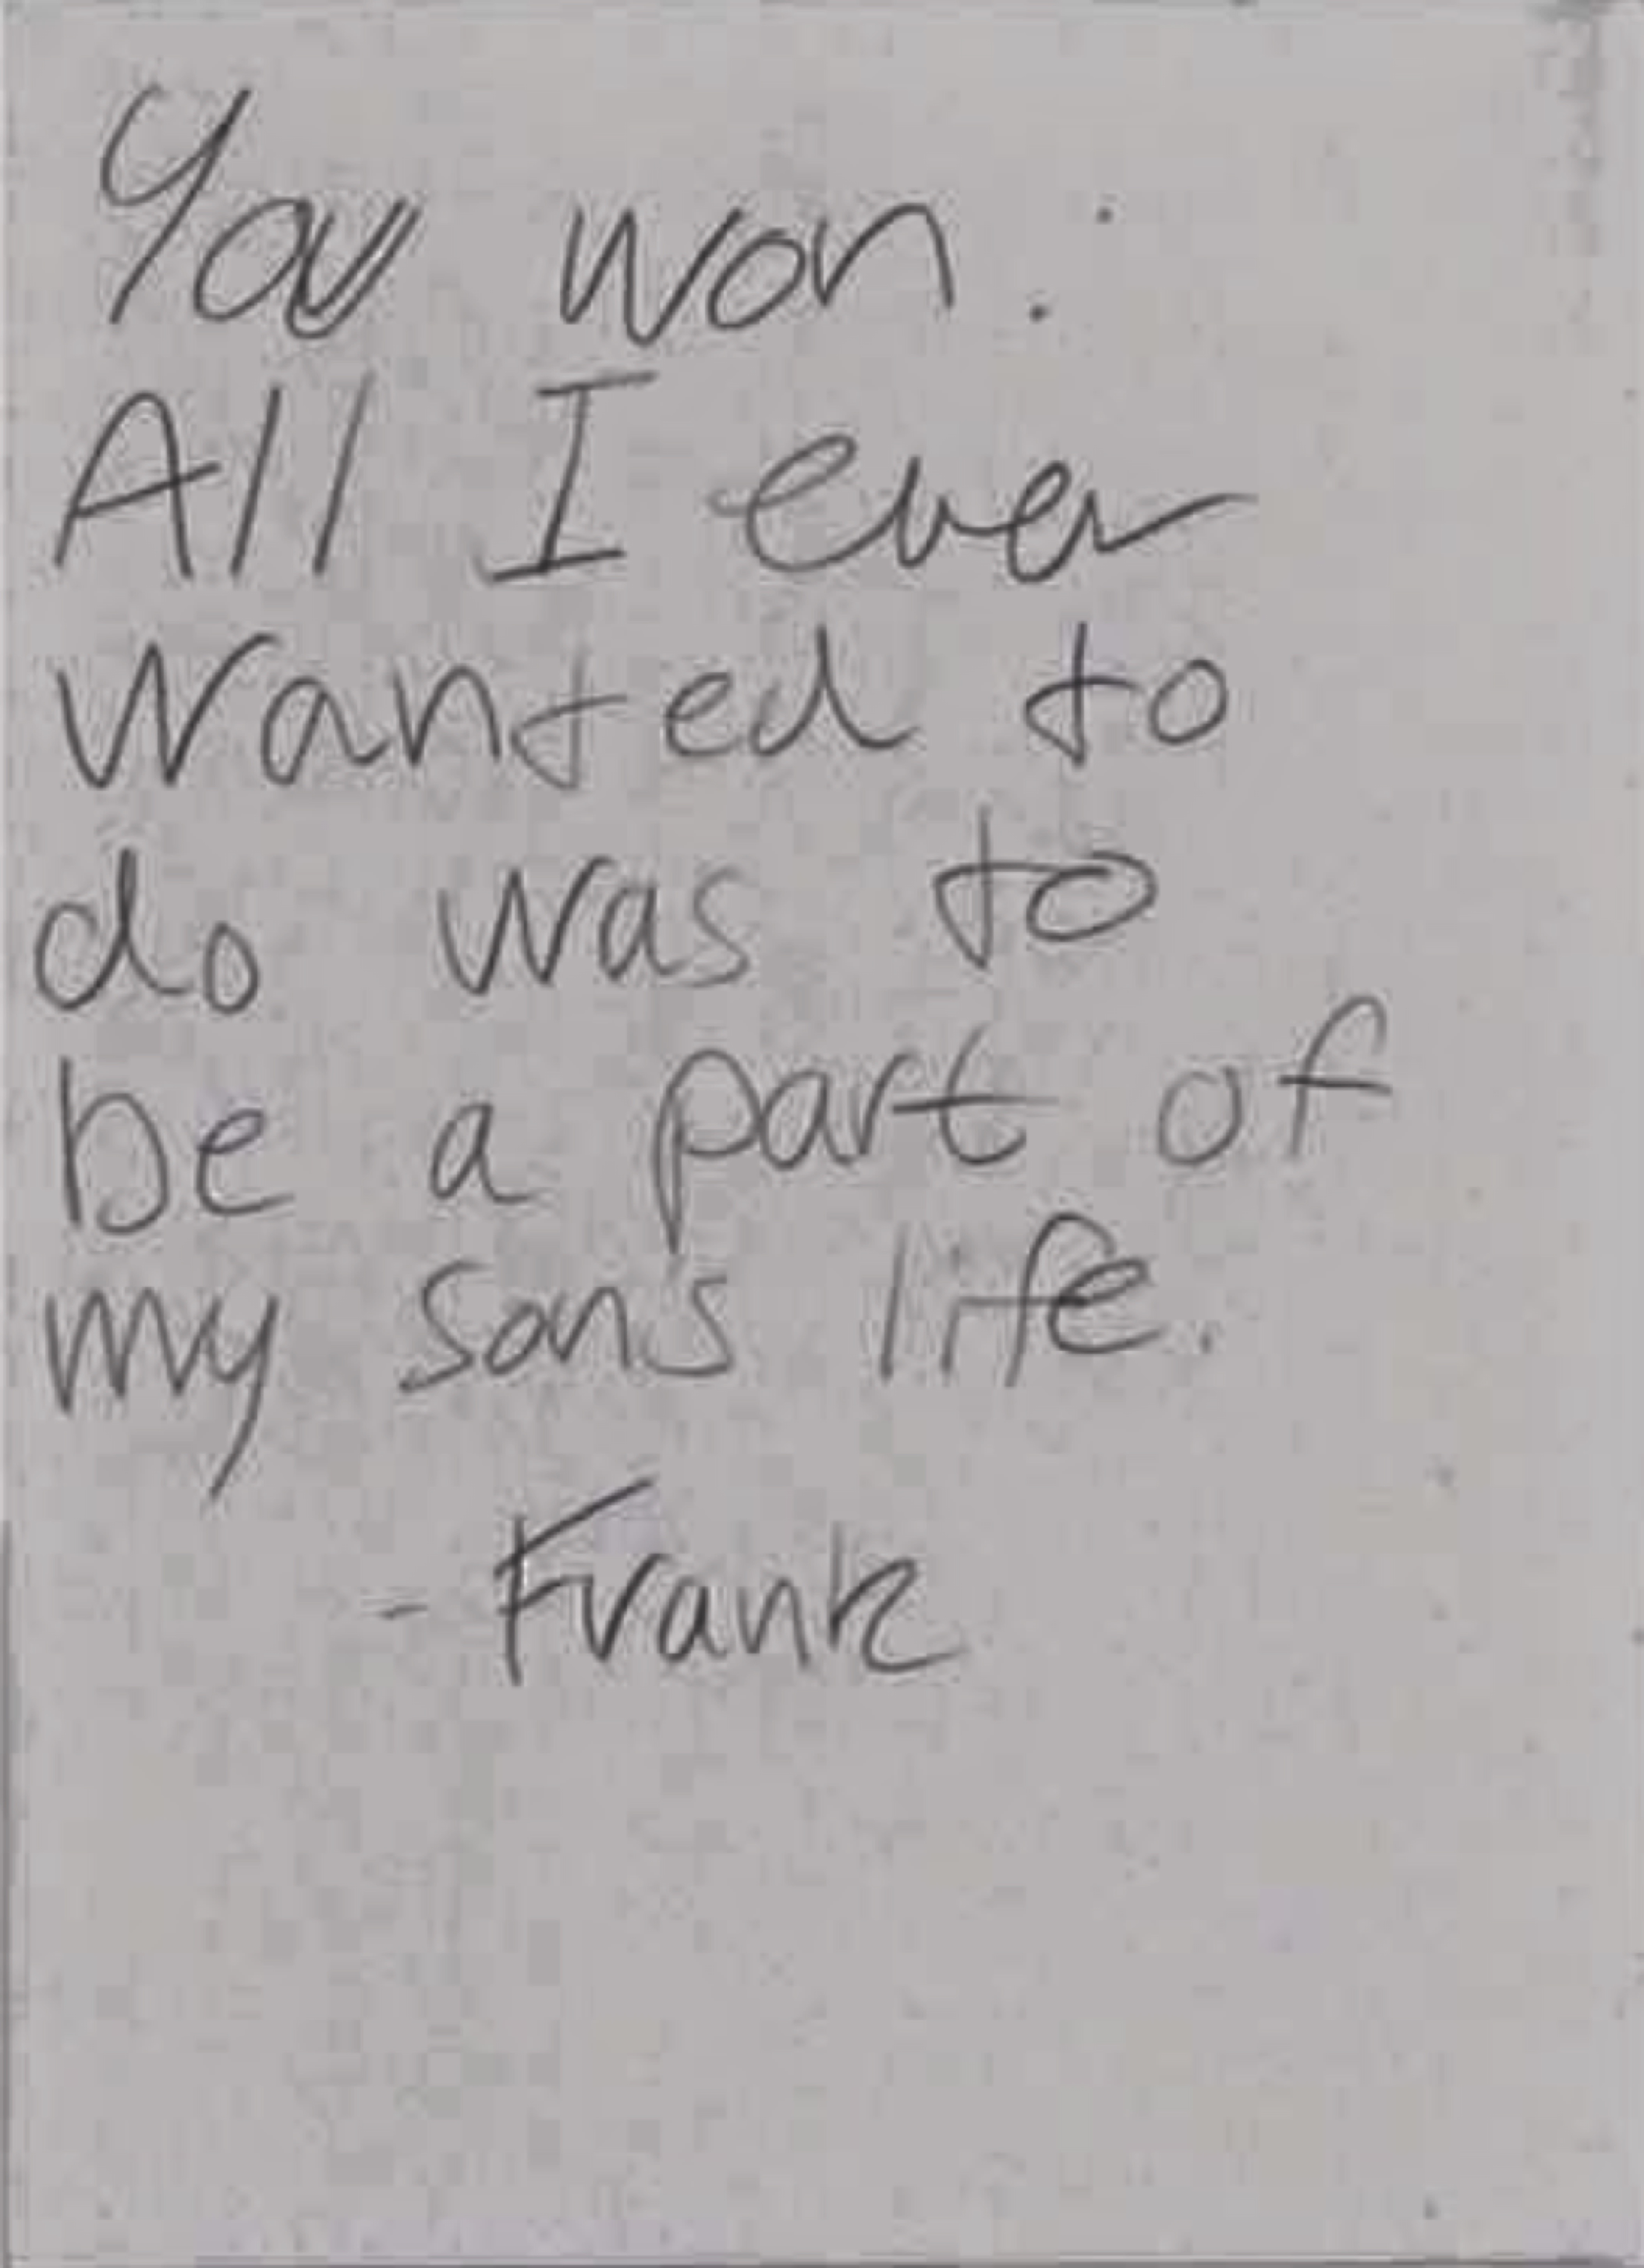 You won.
All I ever
wanted to
do was to
be a part of
my son's life.
- Frank